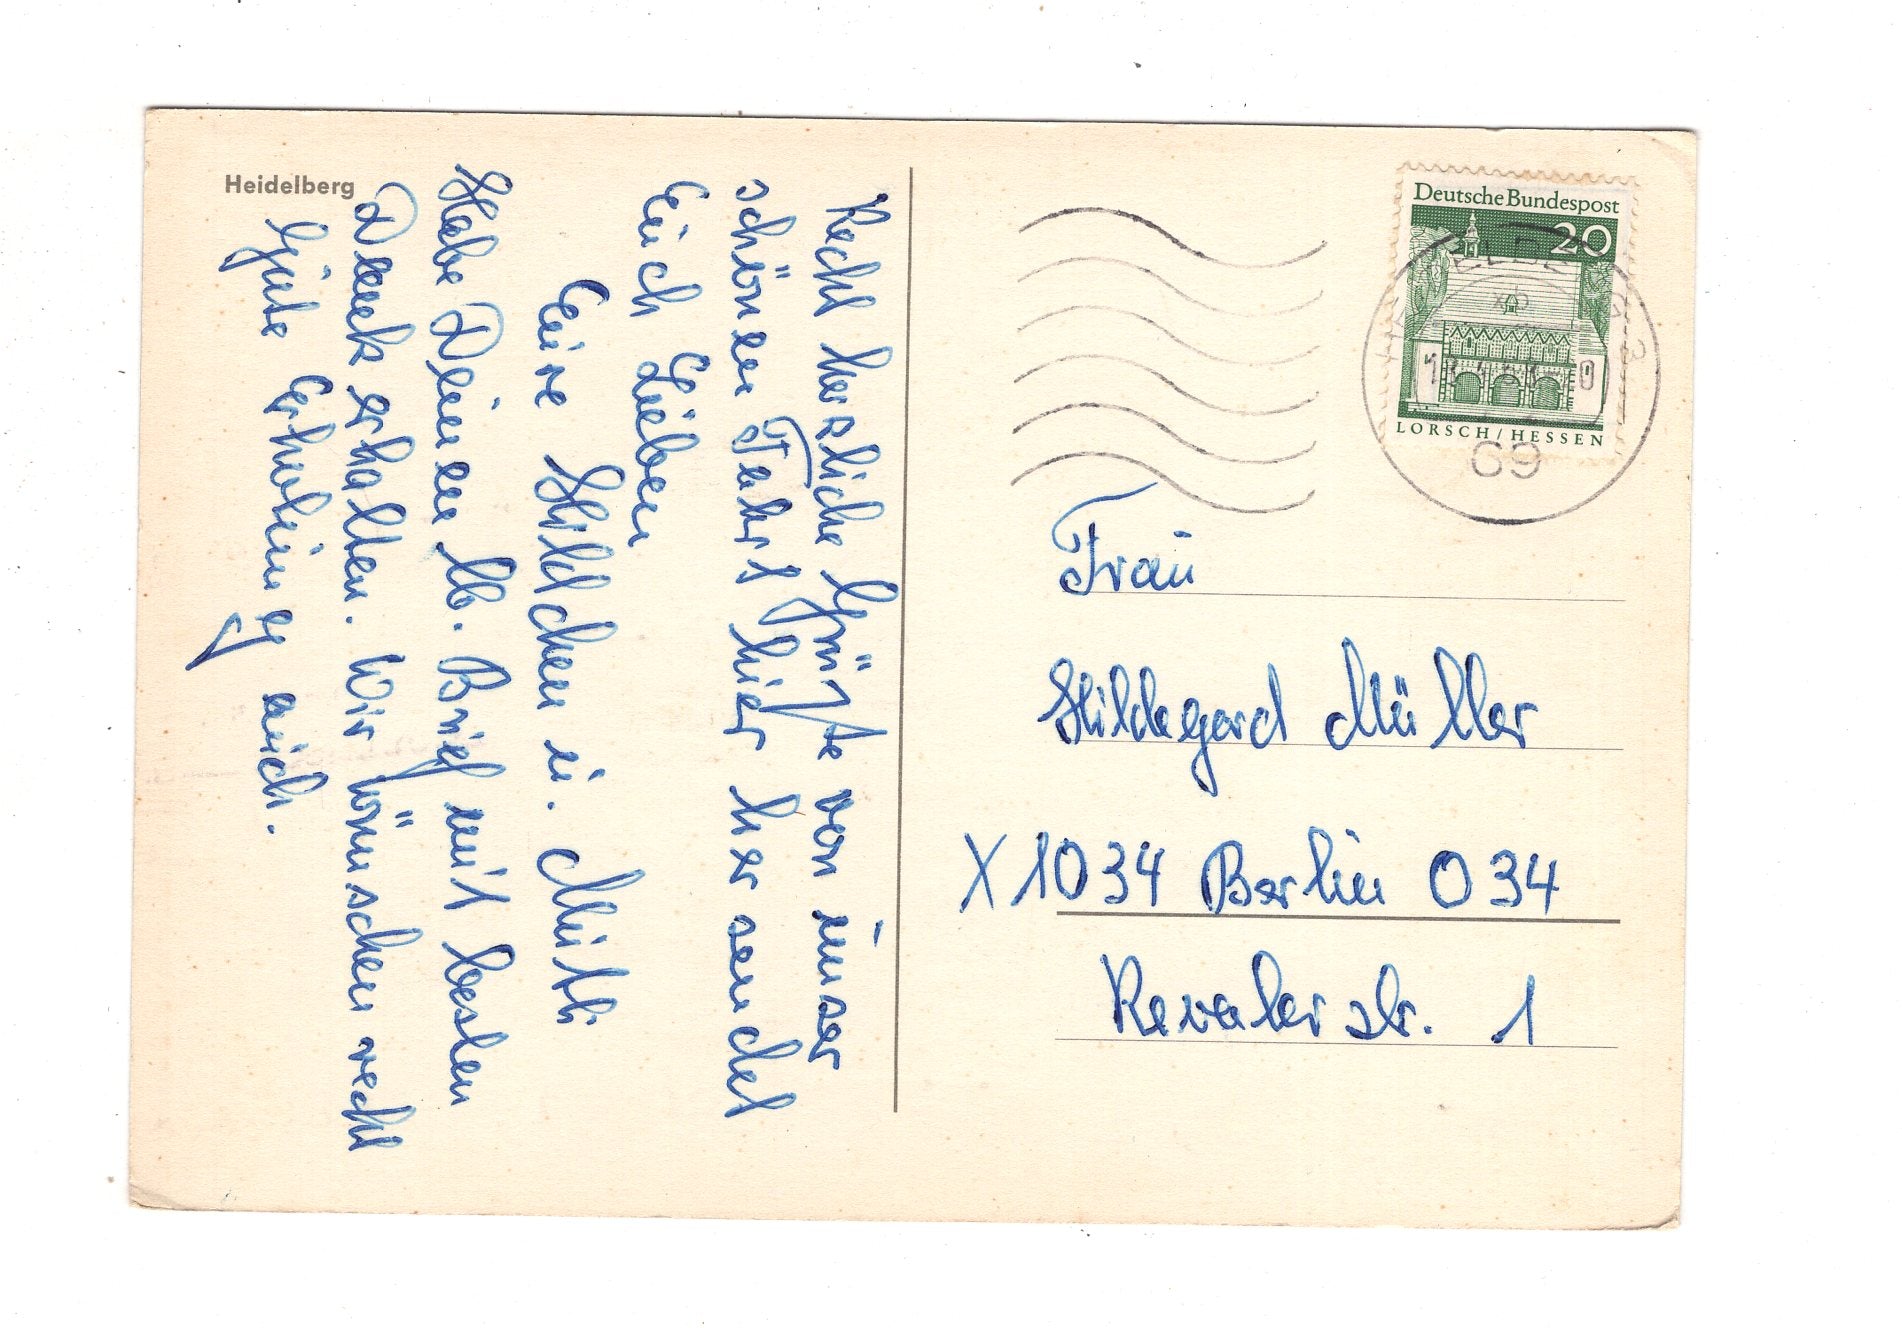 Heidelberg
Recht herzliche Grüße von unser
schönen Fahrt hier her sendet
Euch Lieben
Eure Hildchen u. Mutti
Habe Deinen lb. Brief mit besten
Dank erhalten. Wir wünschen recht
gute Erholung auch.
Deutsche Bundespost
20
LORSCH/HESSEN
69
Frau
Hildegard Müller
X 1034 Berlin O 34
Revaler str. 1